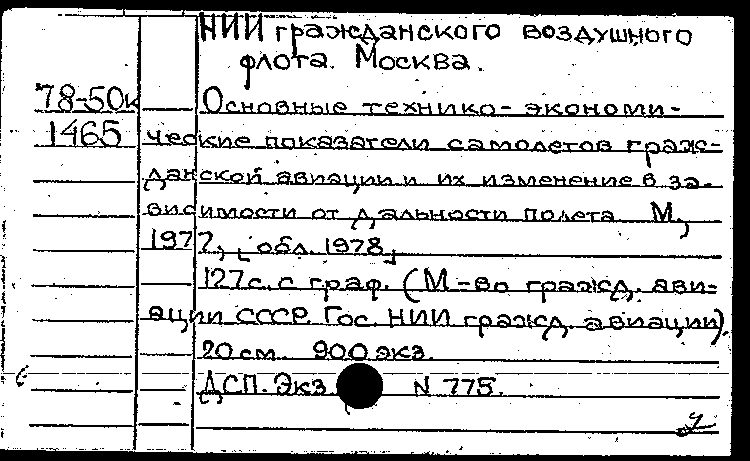 НИИ гражданского воздушного
флота. Москва.
78-50к Основные технико-экономи-
1465 ческие показатели самолетов граж-
данской авиации и их изменение в за-
висимости от дальности полета. М.,
1977, [обл. 1978]
127с. с граф. (М-во гражд. ави-
ации СССР. Гос. НИИ гражд. авиации).
20 см. 900 экз.
ДСП. Экз N 775.